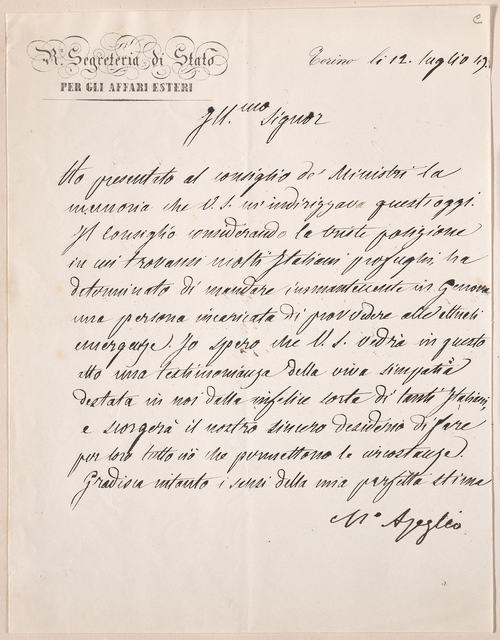 C
Ra Segreteria di Stato
PER GLI AFFARI ESTERI
Torino li 12. luglio 49.
Ill.mo Signor
Ho presentato al consiglio de' Ministri la
memoria che V.S. m'indirizzava quest'oggi.
Il Consiglio considerando la triste posizione
in cui trovansi molti Italiani profughi ha
determinato di mandare immantinente in Genova
una persona incaricata di provvedere alle attuali
emergenze. Io spero che V.S. vedrà in questo
atto una testimonianza della viva simpatia
destata in noi dalla infelice sorte di tanti Italiani,
e scorgerà il nostro sincero desiderio di fare
per loro tutto ciò che permettono le circostanze.
Gradisca intanto i sensi della mia perfetta stima
Mo Azeglio